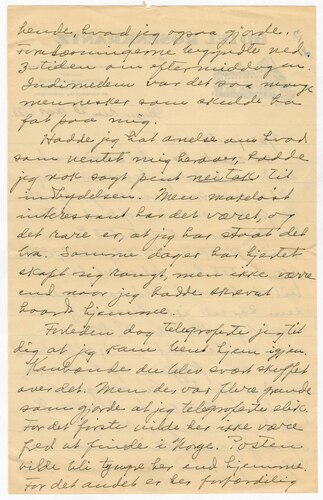 hende, hvad jeg ogsaa gjorde.
Forelæsningerne begyndte ved
3 tiden om eftermiddagen.
Indimellem var det saa mange
mennesker som skulde ha
fat paa mig.
Hadde jeg hat anelse om hvad
som ventet mig herover, hadde
jeg nok sagt pent nei tak til
indbydelsen. Men makeløst
interessant har det været, og
det rare er, at jeg har staat det
bra. Somme dager har hjertet
skapt sig rangt, men ikke værre
end naar jeg hadde strævet
haardt hjemme.
Forleden dag telegraferte jeg til
dig at jeg kom hem hjem igjen.
du blev svært skuffet
over det. Men der var flere grunde
som gjorde at jeg telegraferte slik.
For det første vilde her ikke være
fred at finde i Norge. Posten
vilde bli tyngre her end hjemme.
For det andet er her forfærdelig